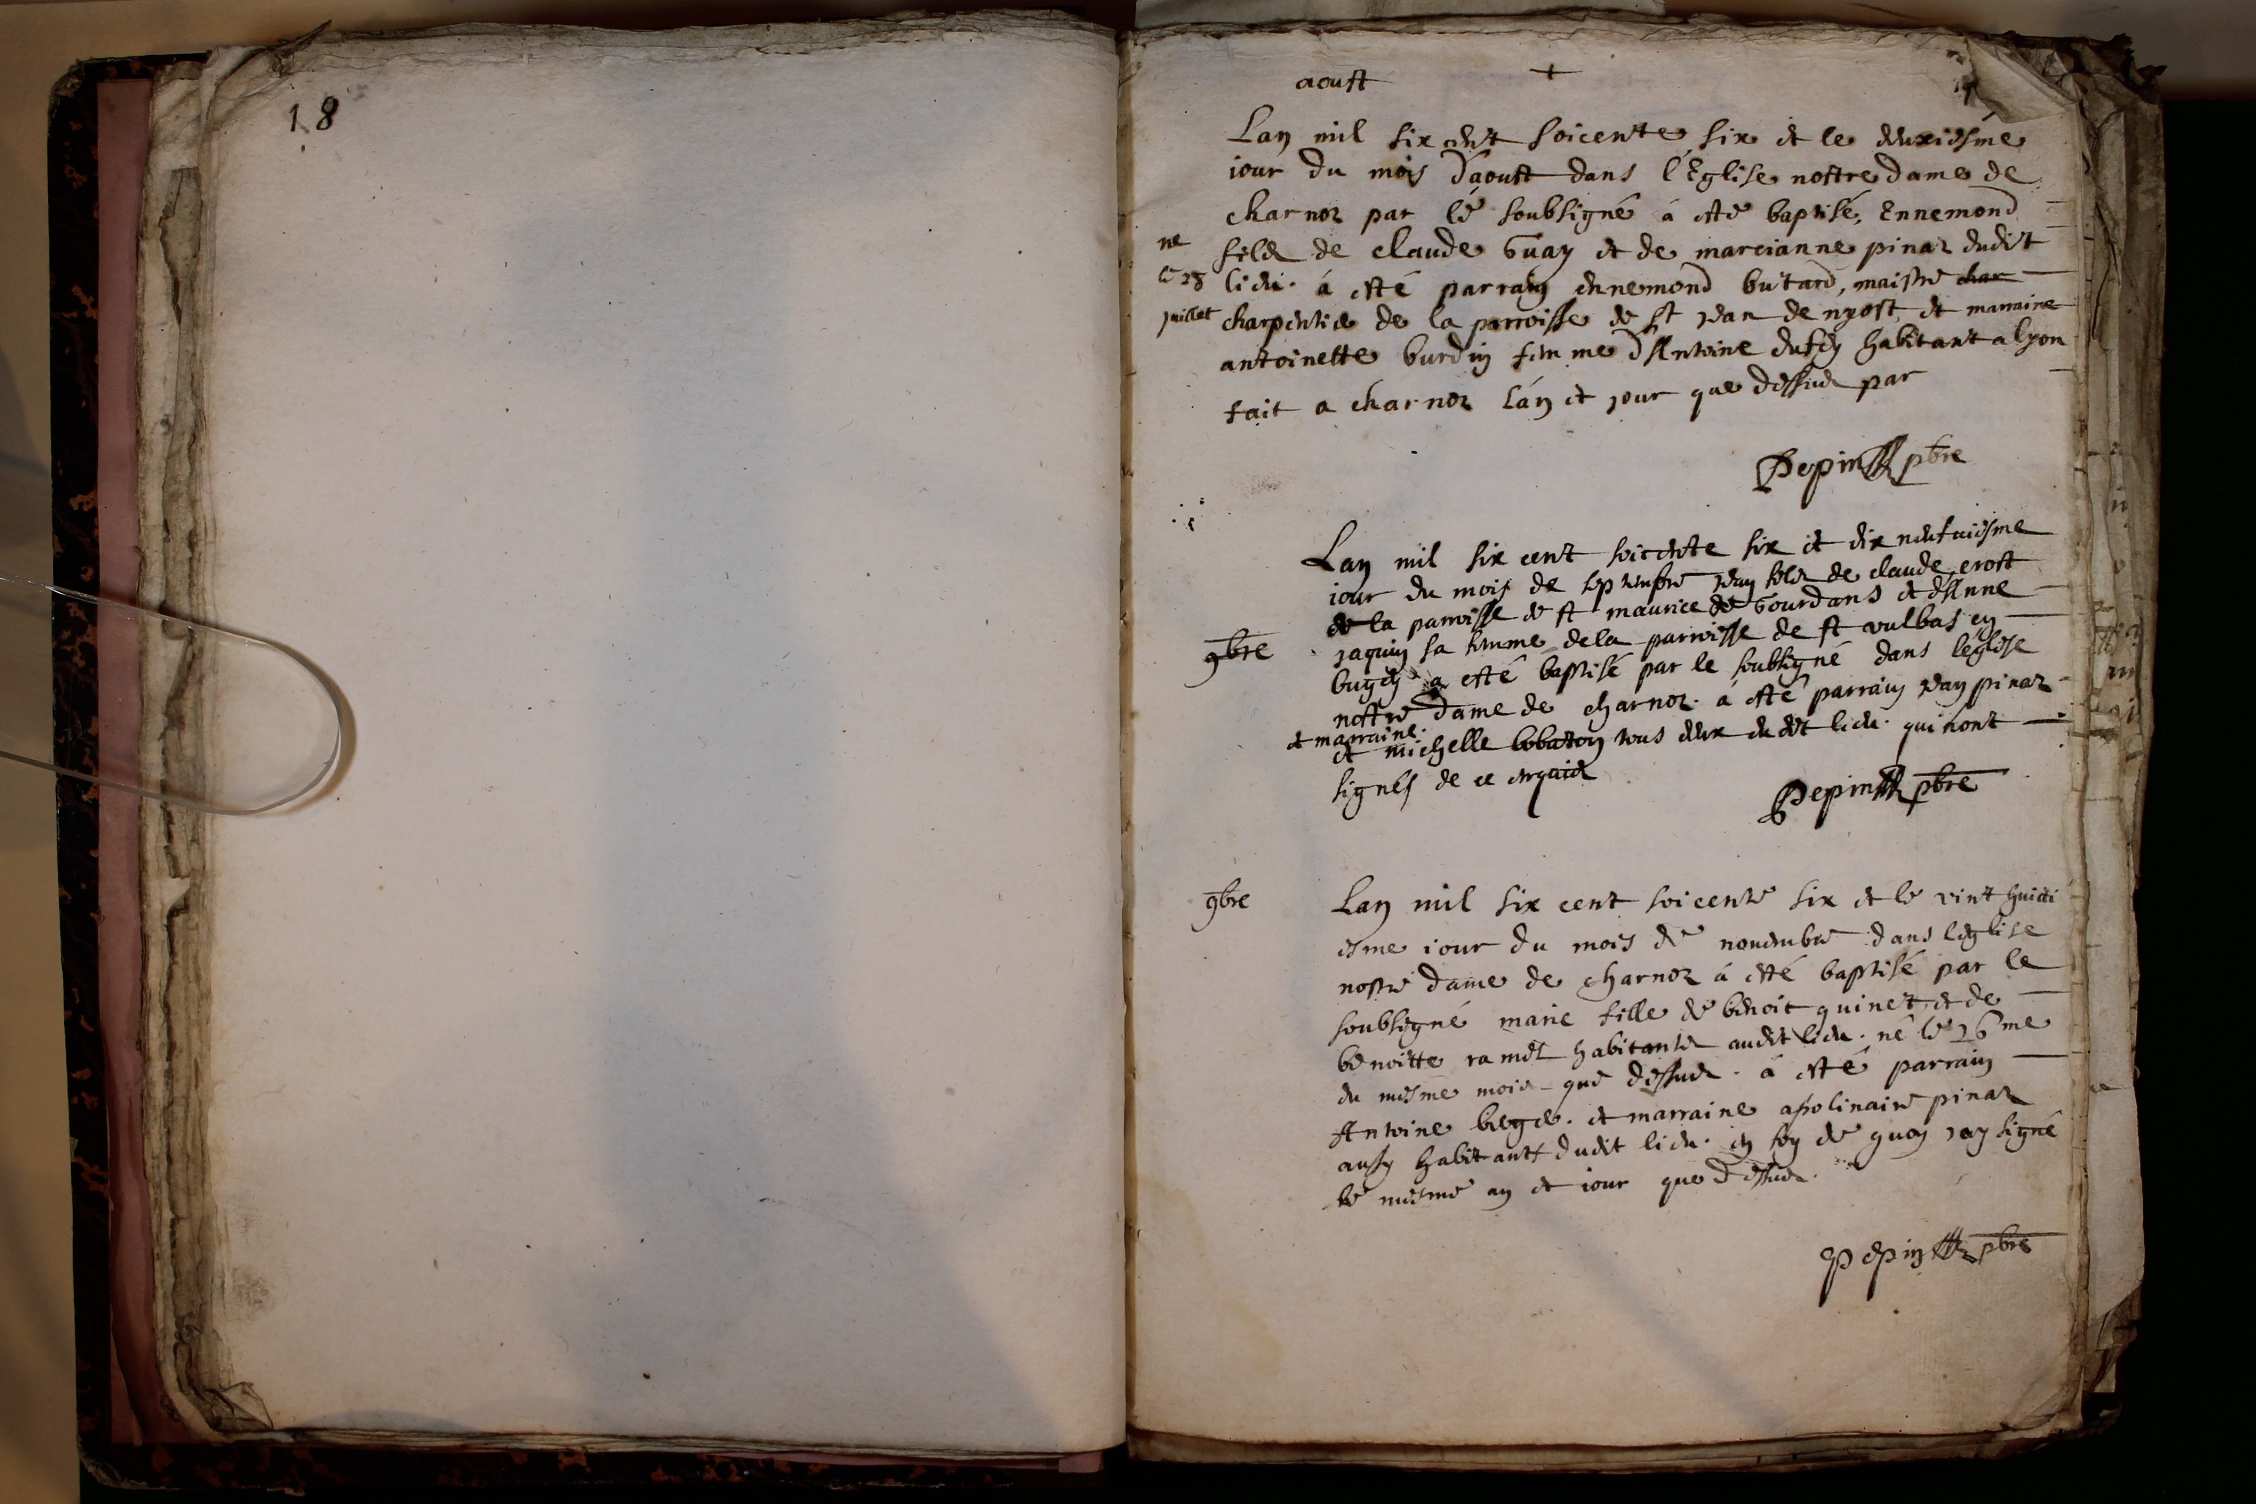 18
aoust +
Lan mil six cent soicente six et le deuxiesme
iour du mois d'aoust dans l'Eglise nostre dame de
charnoz par le soubsigné à esté baptisé, Ennemond
ne
filz de claude Guay et de marcianne pinaz dudit
le 28
lieu. à esté parrain ennemond butard, maistre char
juillet
charpentier de la parroisse de st jean de nyost, et marraine
antoinette burdin femme d'Antoine habitant a lyon
fait a charnoz lán et jour que dessus par
Pepin pbre
Lan mil six cent soicente six et dix neufuiesme
iour du mois de septembre jean filz de claude crost
de la parroisse de st maurice de Gourdans et d'Anne
9bre
jaquin sa femme de la parroisse de st vulbas en
bugey a esté baptisé par le soubsigné dans l'eglise
nostre dame de charnoz. à esté parrain jean pinaz
et marraine.
et michelle tous deux dudit lieu. qui nont
signés de ce enquis
Pepin pbre
9bre
Lan mil six cent soicente six et le vint huicti
esme iour du mois de nouembre dans leglise
nostre dame de charnoz à esté baptisé par le
soubsigné marie fille de benoit quinet et de
benoitte ramel habitants audit lieu. né le 26me
du mesme mois que dessus. à esté parrain
Antoine berger. et marraine apolinaire pinaz
aussy habitants dudit lieu. en foy de quoy jay signé
le mesme an et iour que dessus.
Pepin pbre